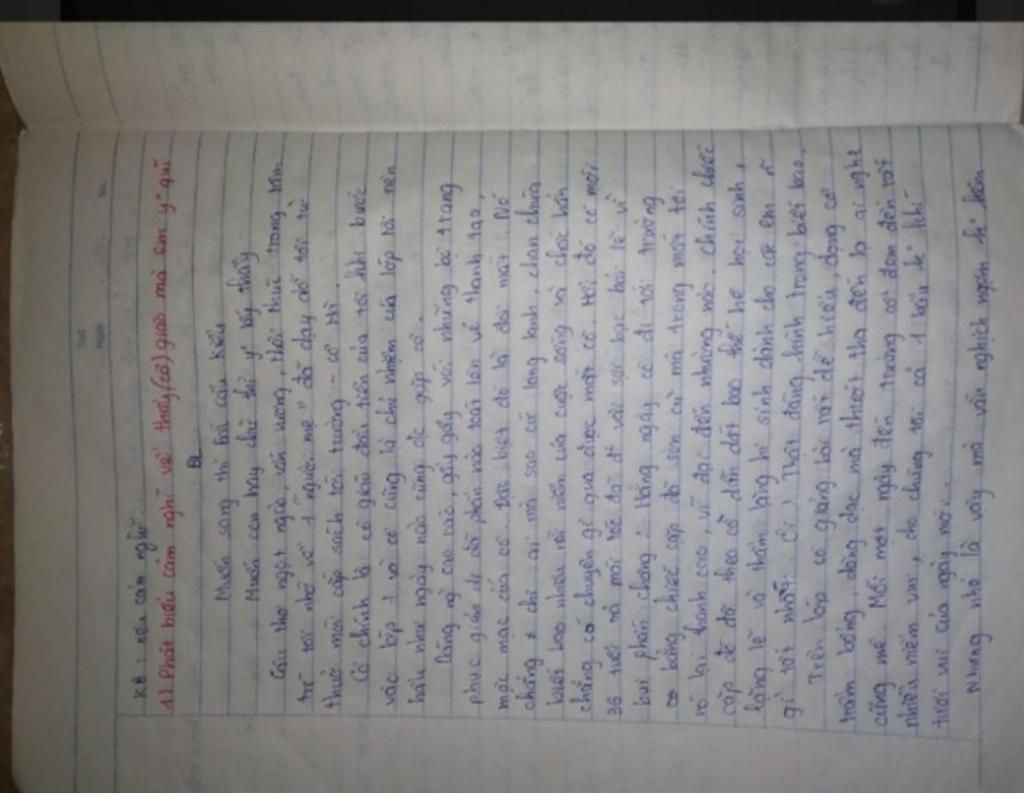 KB: nêu cảm nghĩ.
1) Phát biểu cảm nghĩ về thầy(cô) giáo mà em yêu quí
BL
Muốn sang thì bắc cầu Kiều
Muốn con hay chữ thì yêu lấy thầy
Câu thơ ngọt ngào, vấn vương, thôi thúc trong tâm
trí tôi nhớ về 1 "người mẹ" đã dạy dỗ tôi từ
thuở mới cắp sách tới trường - cô Hà.
Cô chính là cô giáo đầu tiên của tôi khi bước
vào lớp 1 và cô cũng là chủ nhiệm của lớp tôi nên
hầu như ngày nào cũng đc gặp cô.
Dáng người cao cao, gầy gầy với những bộ trang
phục giản dị đã phần nào toát lên vẻ thanh tao,
mộc mạc của cô. Đặc biệt đó là đôi mắt. Nó
chẳng chỉ ai mà sao cứ long lanh, chan chứa
biết bao nhiêu nỗi niềm của cuộc sống và chắc hẳn
chẳng có chuyện gì qua được mắt cô. Hồi đó cô mới
36 tuổi mà mái tóc đã đi vài sợi bạc bởi lẽ vì
bụi phấn chăng? Hằng ngày cô đi tới trường
bằng chiếc cặp đã sờn cũ mà trong mắt tôi
nó lại thanh cao, vĩ đại đến nhường nào. Chính chiếc
cặp đó đã theo cô dẫn dắt bao thế hệ học sinh,
lặng lẽ và thầm lặng hi sinh dành cho các em những
gì tốt nhất. Ôi! Thật đáng kính trọng biết bao.
Trên lớp, cô giảng bài rất dễ hiểu, giọng cô
trầm bổng, dõng dạc mà thướt tha đến lạ ai nghe
cũng mê. Mỗi một ngày đến trường cô đem đến rất
nhiều niềm vui, cho chúng tôi cả 1 bầu không khí
tươi vui của ngày mới.
Nhưng nhớ là vậy mà vẫn nghịch ngợm